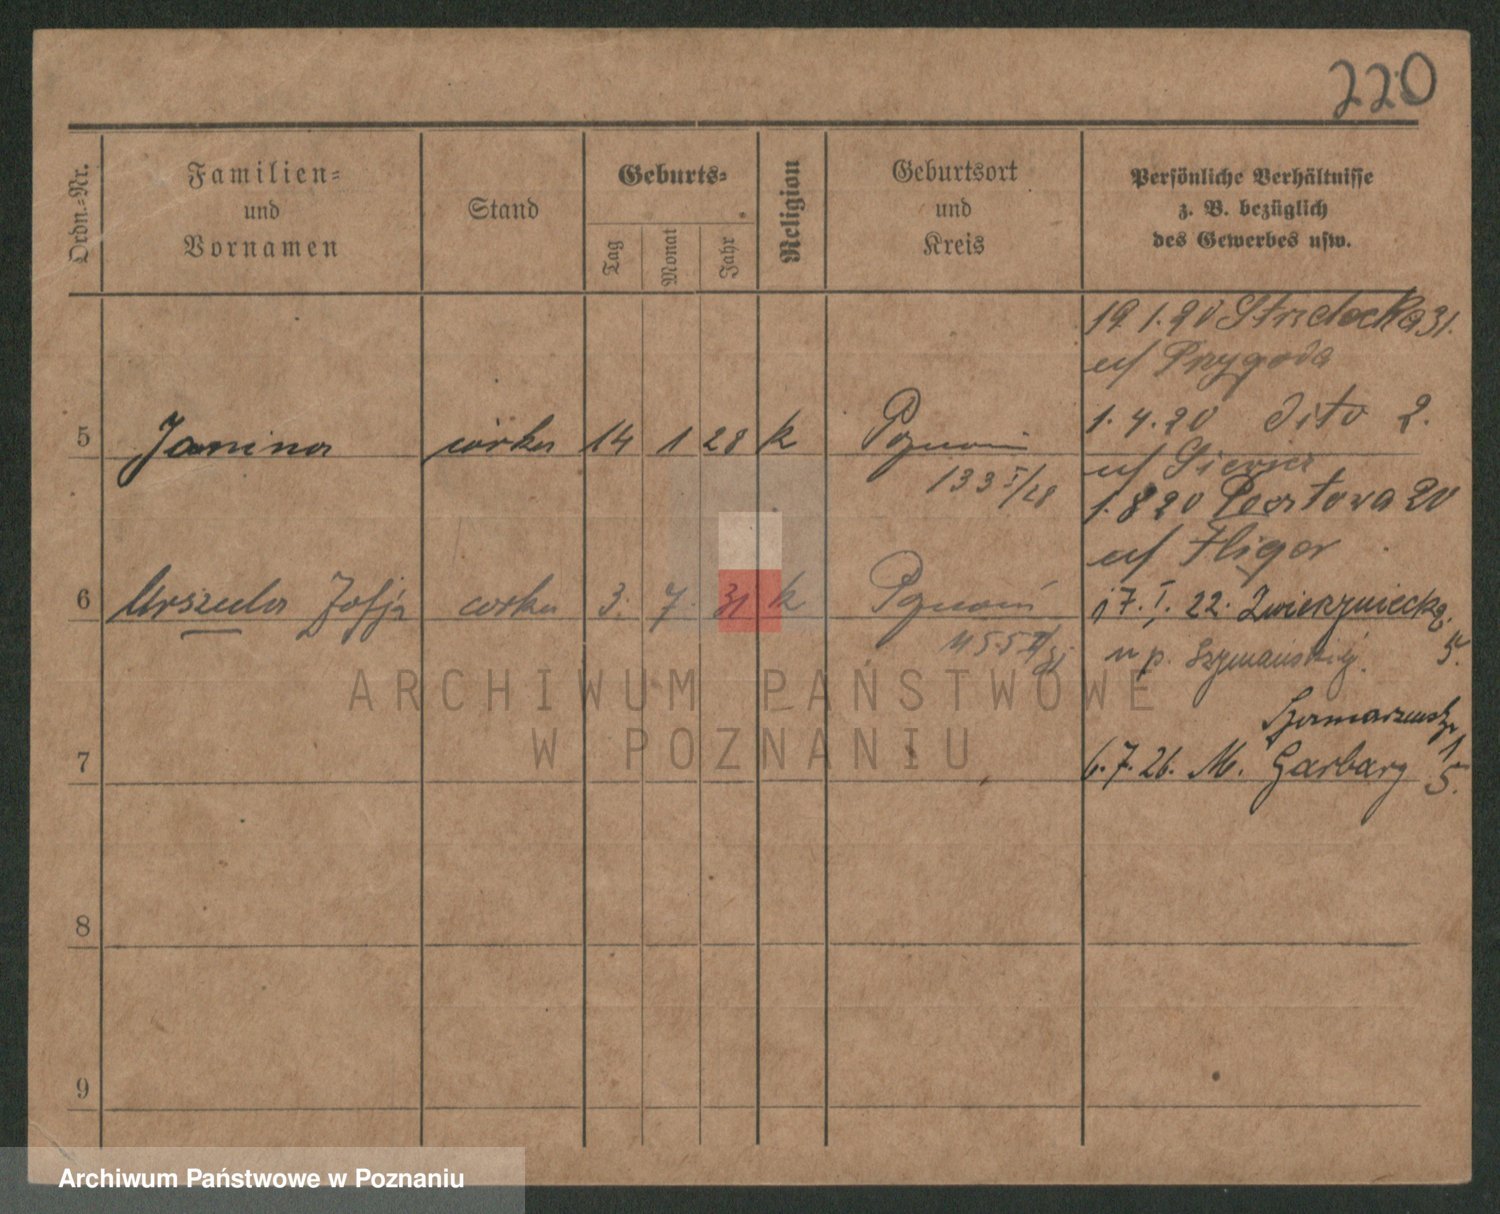 220
Ordn.=Nr.
Familien=
und
Vornamen
Stand
Geburts=
Tag
Monat
Jahr
Religion
Geburtsort
und
Kreis
Persönliche Verhältnisse
z. B. bezüglich
des Gewerbes usw.
19.1.20 Strzelecka 31.
u/ Przygoda
1.4.20 dito 2.
5 Janina córka 14 1 28 k Poznań
133 I/28
u/
1.8.20 Pocztowa 20
u/ Fliger
6 Urszula Zofja corka 3. 7. 31 k Poznań
17. I. 22. Zwierzyniecka
u p. Szymańskiej. 5.
ARCHIWUM PAŃSTWOWE
W POZNANIU
7
6.7.26. M. Garbary 5.
8
9
Archiwum Państwowe w Poznaniu